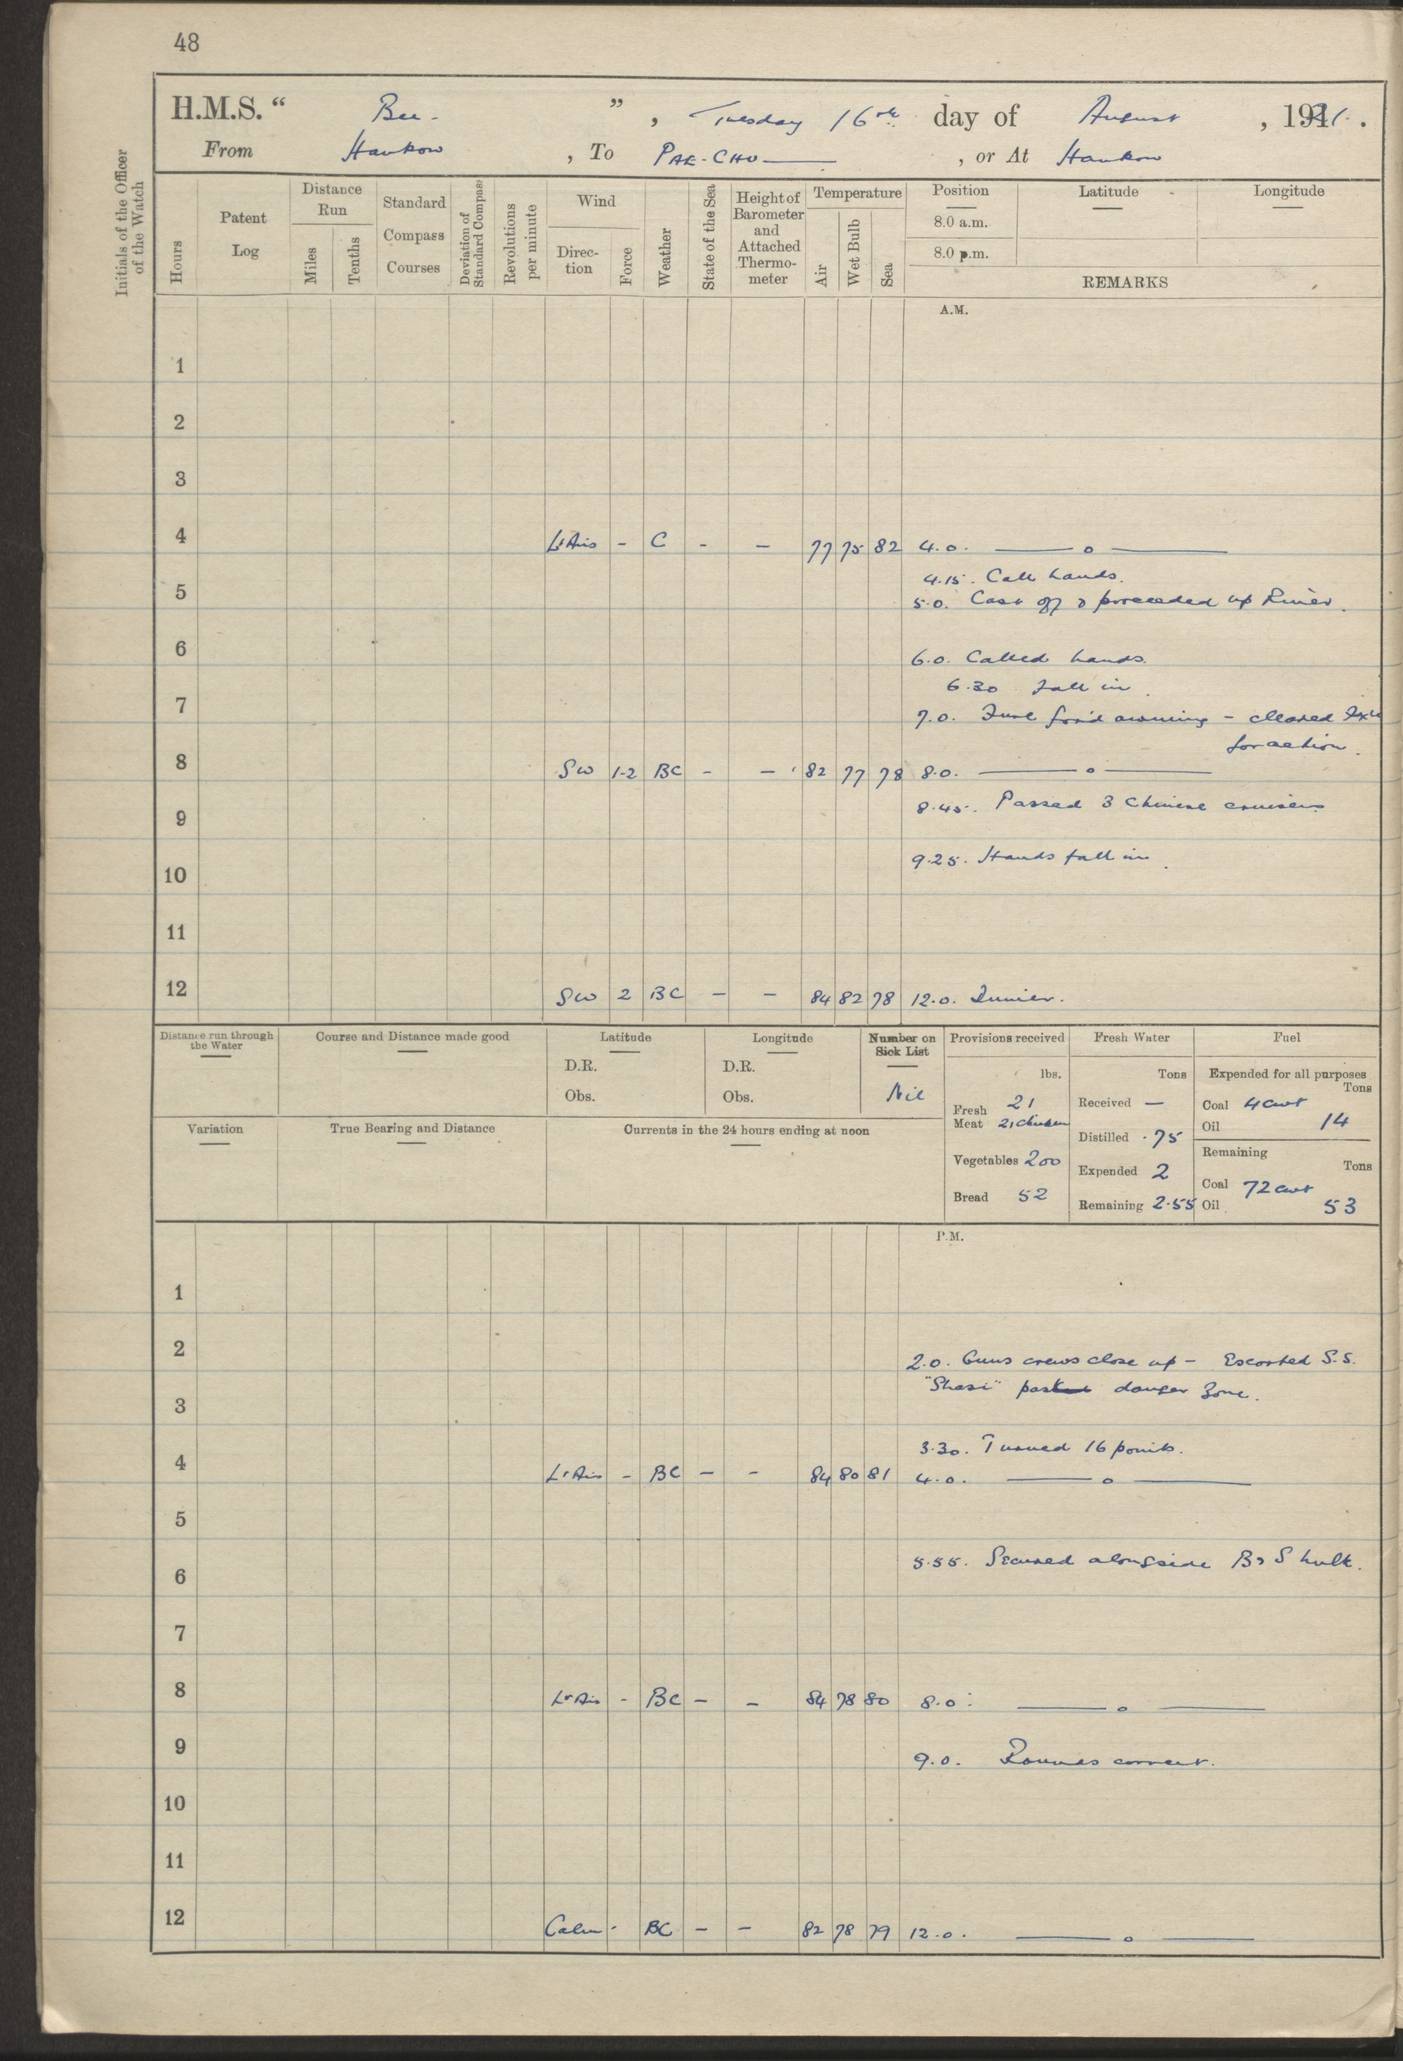 48
H.M.S. " Bee. ", Tuesday 16th day of August, 1921.
From Hankow, To PAE-CHU, or At Hankow
Initials of the Officer of the Watch
Hours
Patent Log
Distance Run
Miles
Tenths
Standard Compass Courses
Deviation of Standard Compass
Revolutions per minute
Wind
Direction
Force
Weather
State of the Sea
Height of Barometer and Attached Thermometer
Temperature
Air
Wet Bulb
Sea
Position
Latitude
Longitude
8.0 a.m.
8.0 p.m.
REMARKS
A.M.
1
2
3
4 Lt Airs - C - - 77 75 82 4.0. —o—
4.15. Call hands.
5
5.0. Cast off & proceeded up River.
6
6.0. Called hands.
6.30 Fall in.
7
7.0. Furl for'd awning - cleared
for action.
8 SW 1-2 BC - - 82 77 78 8.0. —o—
8.45. Passed 3 Chinese cruisers
9
9.25. Hands fall in.
10
11
12 SW 2 BC - - 84 82 78 12.0. Dinner.
Distance run through the Water
Course and Distance made good
Latitude
D.R.
Obs.
Longitude
D.R.
Obs.
Number on Sick List
Nil
Provisions received
lbs.
Fresh Meat 21
21 chicken
Vegetables 200
Bread 52
Fresh Water
Tons
Received —
Distilled .75
Expended 2
Remaining 2.55
Fuel
Expended for all purposes
Tons
Coal 4 cwt
Oil 14
Remaining
Tons
Coal 72 cwt
Oil 53
Variation
True Bearing and Distance
Currents in the 24 hours ending at noon
P.M.
1
2
2.0. Guns crews close up - Escorted S.S.
"Shasi" past danger zone.
3
3.30. Turned 16 points.
4 Lt Airs - BC - - 84 80 81 4.0. —o—
5
5.55. Secured alongside B & S hulk.
6
7
8 Lt Airs - BC - - 84 78 80 8.0. —o—
9
9.0. Rounds correct.
10
11
12 Calm - BC - - 82 78 79 12.0. —o—